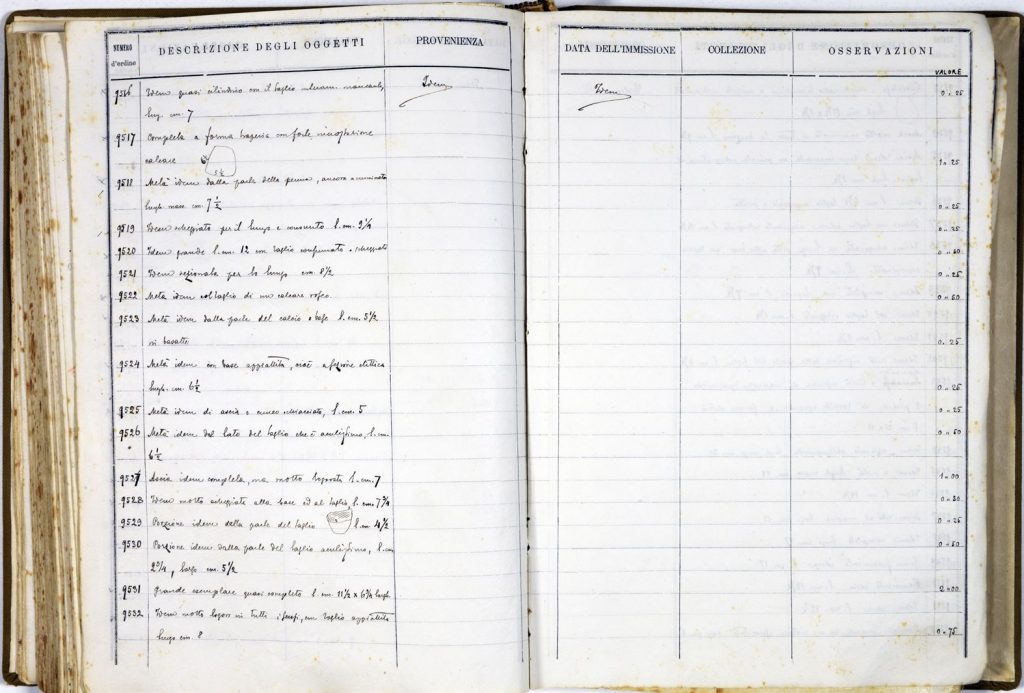 NUMERO d'ordine
DESCRIZIONE DEGLI OGGETTI
PROVENIENZA
DATA DELL'IMMISSIONE
COLLEZIONE
OSSERVAZIONI
VALORE
9516 Idem quasi cilindrico con il taglio
lung. cm. 7
Idem
Idem
0 = 25
9517 Completa a forma con forte incrostazione
calcare
5 ½
1 = 25
9518 Metà idem dalla parte della penna, ancora
lungh. mass. cm. 7 ½
0 = 25
9519 Idem scheggiata per il lungo e consunto l. cm. 9 ¼
0 = 25
9520 Idem grande l. cm. 12 con taglio consumato e scheggiato
0 = 40
9521 Idem per lo lungo cm. 8 ½
0 = 25
9522 Metà idem col taglio di un calcare roseo
0 = 50
9523 Metà idem dalla parte del calcio o base l. cm. 5 ½
in basalte
0 = 25
9524 Metà idem con base appiattita, cioè a sezione elittica
lungh. cm. 6 ½
0 = 25
9525 Metà idem di ascia o cuneo schiacciato, l. cm. 5
0 = 25
9526 Metà idem del lato del taglio che è acutissimo, l. cm.
6 ½
0 = 50
9527 Ascia idem completa, ma molto logorata l. cm. 7
1 = 00
9528 Idem molto scheggiata alla base ed al taglio, l. cm. 7 ¾
0 = 30
9529 Porzione idem della parte del taglio l. cm. 4 ½
0 = 25
9530 Porzione idem dalla parte del taglio acutissimo, l. cm
2 ¾, largo cm. 5 ½
0 = 50
9531 Grande esemplare quasi completo l. cm. 11 ½ x 6 ¾ largh.
2 = 00
9532 Idem molto logoro in tutti i sensi, con taglio appiattito
lungo cm. 8
0 = 75